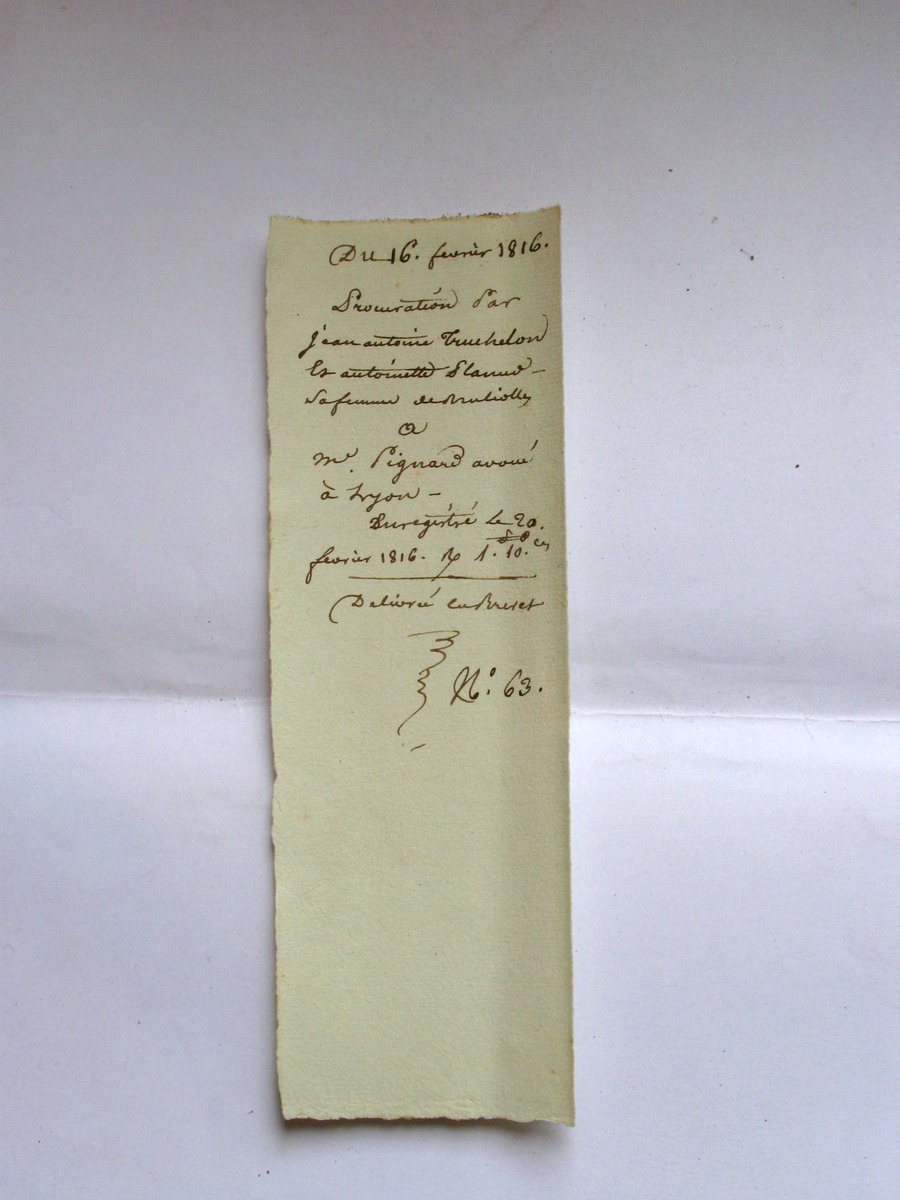 Du 16. fevrier 1816.
Procuration Par
jean antoine Truchelon
Et antoinette
sa femme de Brulliolles
a
Me. Pignard avoué
à Lyon -
Enregistré Le 20.
fevrier 1816. R 1. 10. ces
Delivrée en Brevet
No. 63.